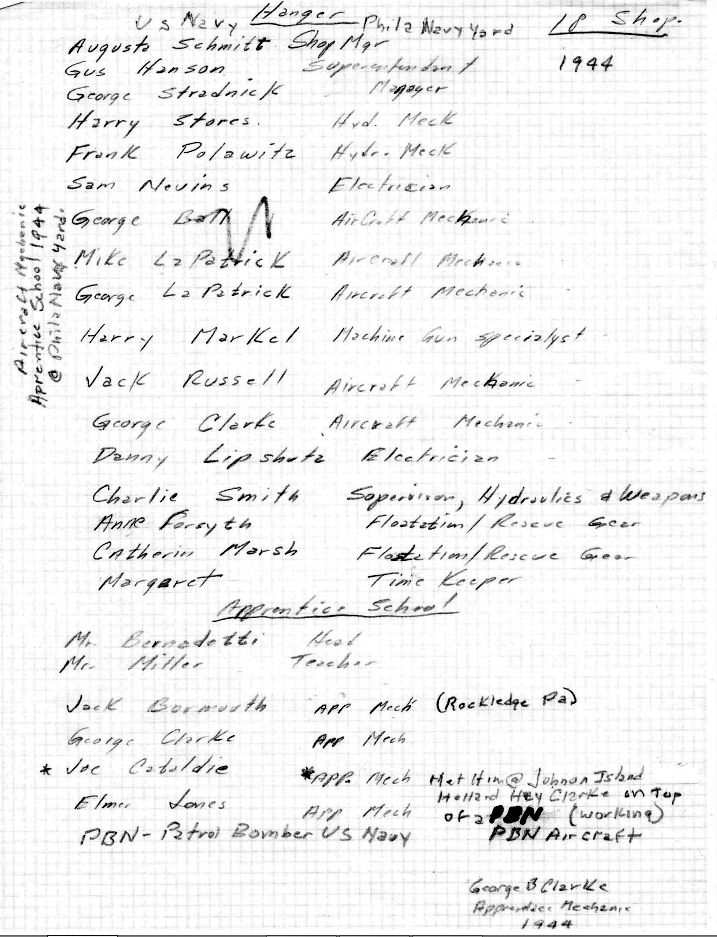 US Navy Hanger Phila Navy Yard 18 Shop.
Augusta Schmitt Shop Mgr
Gus Hanson Superentendant 1944
George Stradnick Manager
Harry Stores. Hyd. Meck
Frank Polawitz Hydr. Meck
Sam Nevins Electrician
George Ball AirCraft Mechanic
Mike LaPatrick Aircraft Mechanic
George LaPatrick Aircraft Mechanic
Harry Markel Machine Gun specialyst
Jack Russell Aircraft Mechanic
George Clarke Aircraft Mechanic
Danny Lipshutz Electrician
Charlie Smith Supervisor, Hydraulics & Weapons
Anne Forsyth Floatation/Rescue Gear
Catherin Marsh Floatation/Rescue Gear
Margaret Time Keeper
Aircraft Mechanic
Aprentice School 1944
@ Phila Navy Yard.
Apprentice School
Mr. Bernadetti Head
Mr. Miller Teacher
Jack Bormouth App Mech (Rockledge Pa)
George Clarke App Mech
* Joe Cataldie *App. Mech Met Him @ Johnan Island
Hollard Hey Clarke on Top
Elmer Jones App Mech of a PBN (working)
PBN - Patrol Bomber US Navy PBN Aircraft
George B Clarke
Apprentice Mechanic
1944